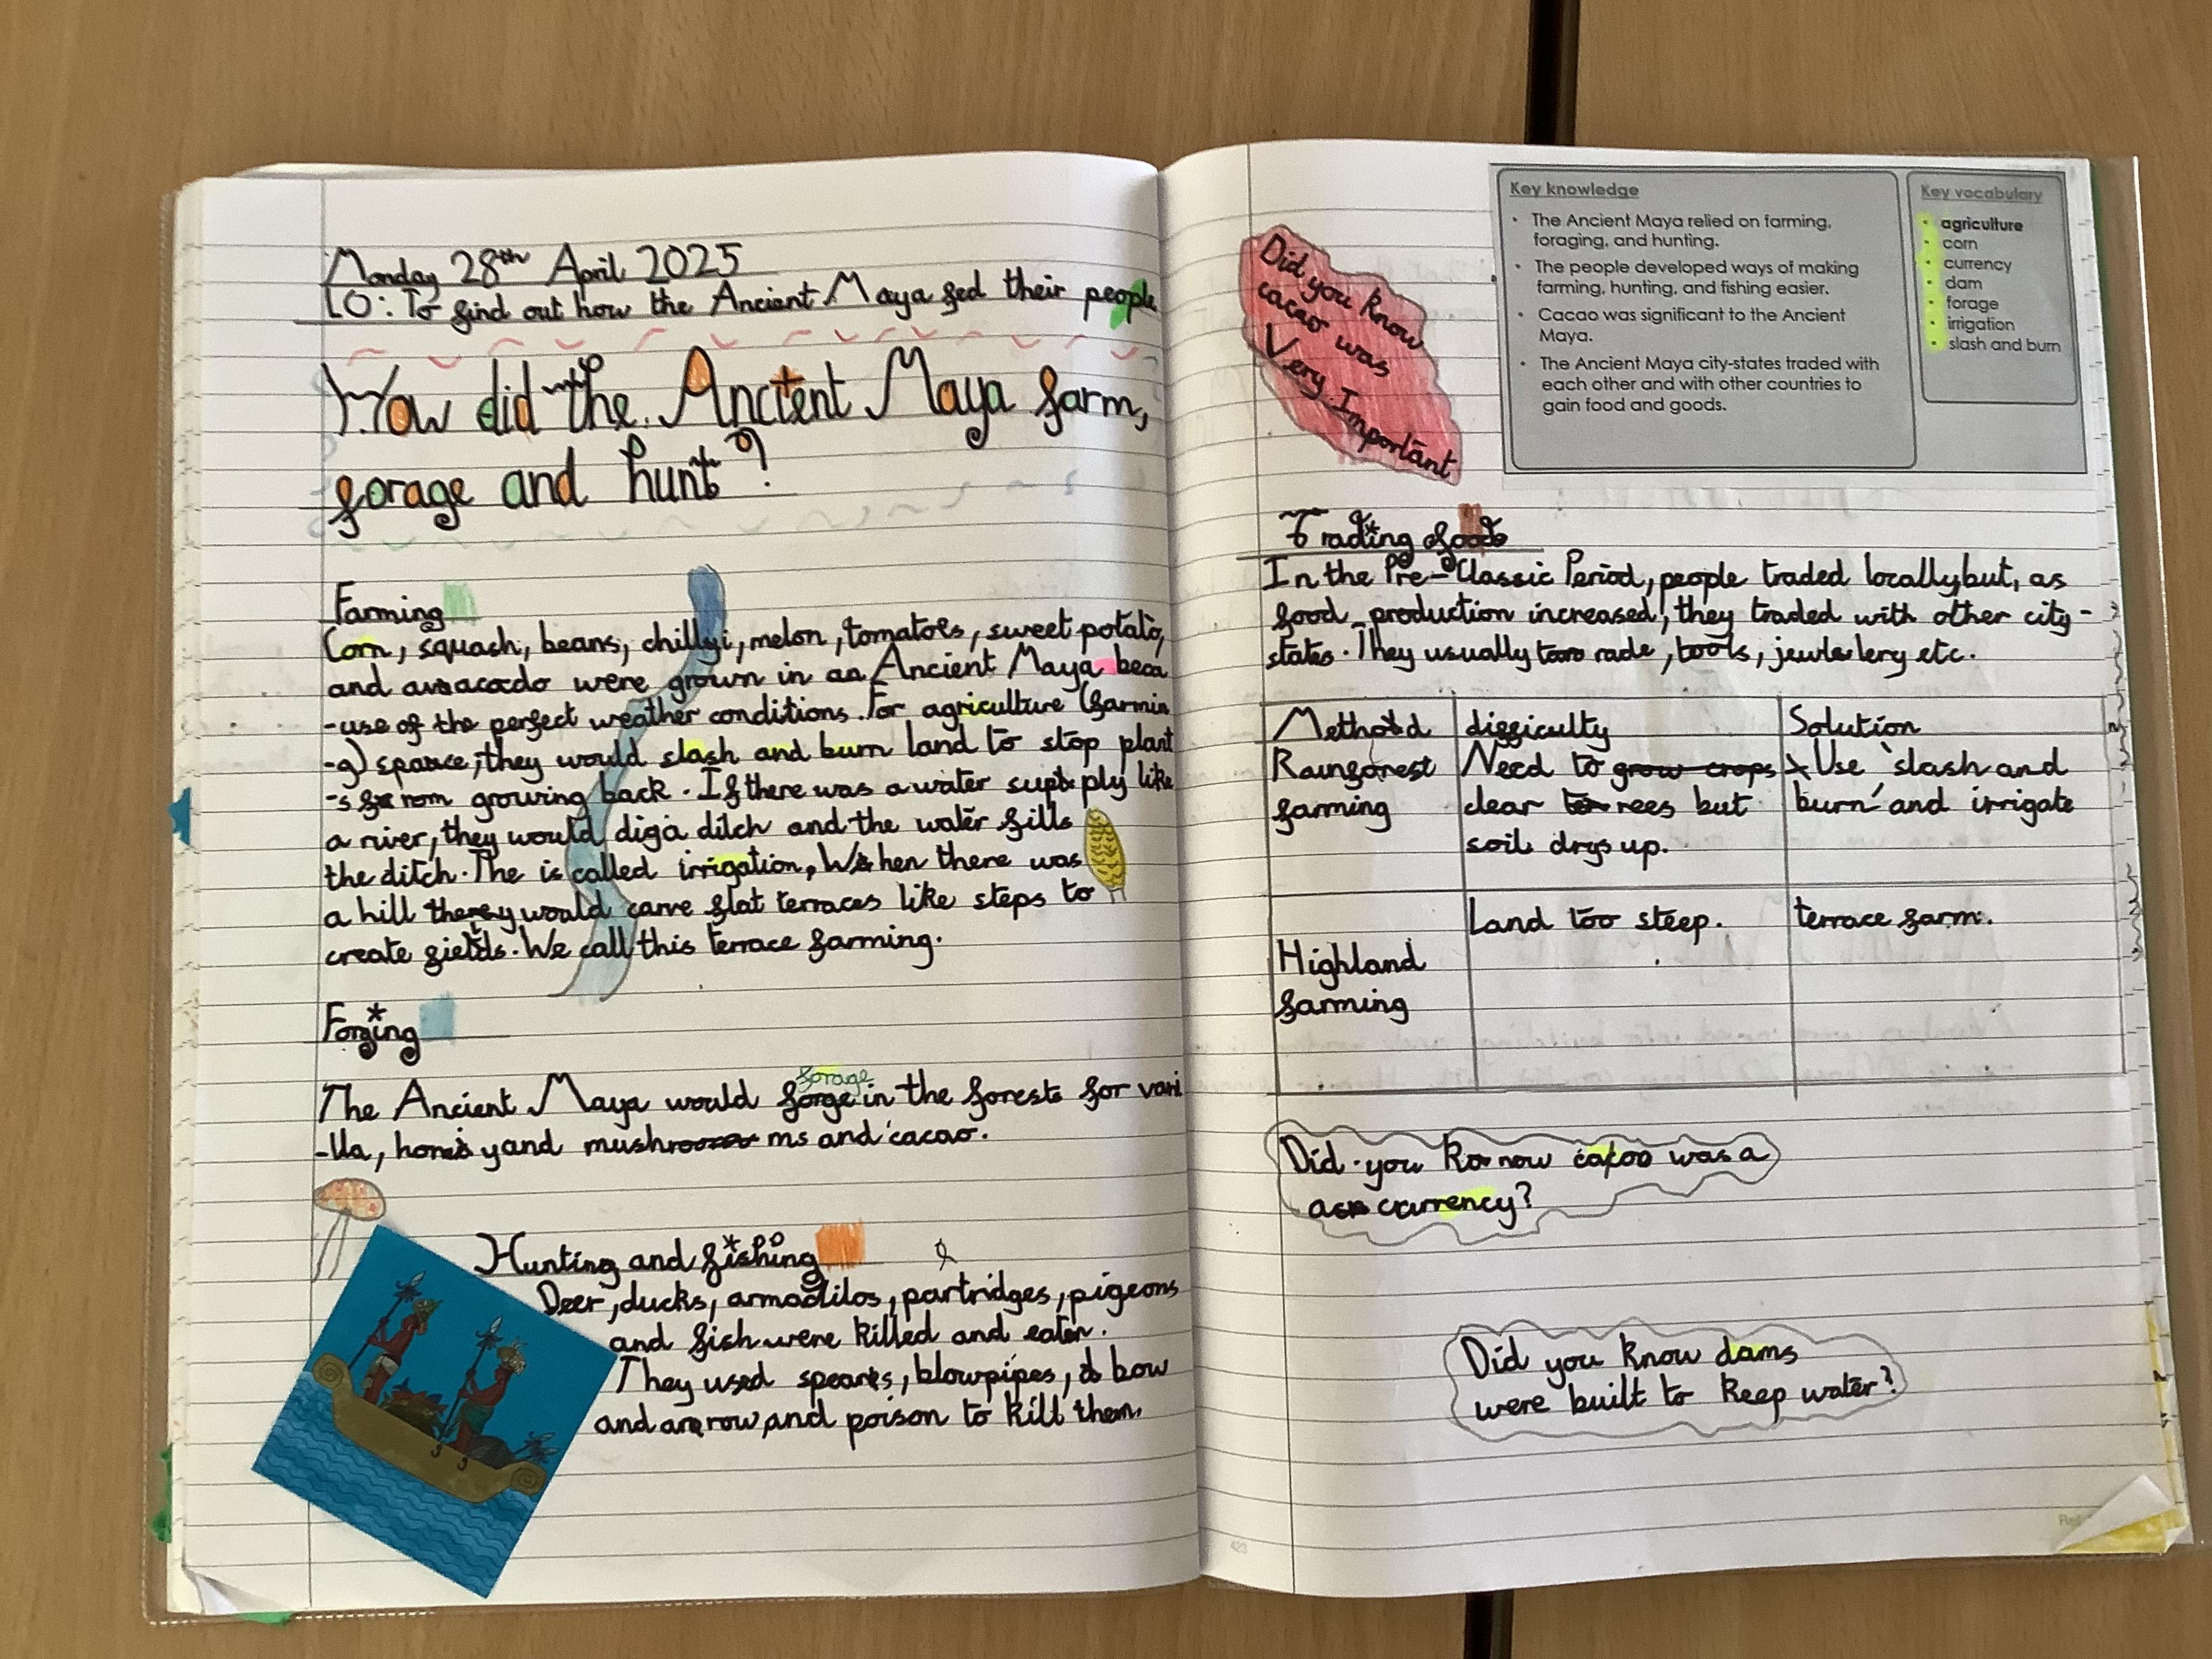 Monday 28th April 2025
LO: To find out how the Ancient Maya fed their people
How did the Ancient Maya farm,
forage and hunt?
Farming
Corn, squash, beans, chillyi, melon, tomatoes, sweet potato,
and avacado were grown in an Ancient Maya beca
-use of the perfect weather conditions. For agriculture (farmin
-g) space, they would slash and burn land to stop plant
-s from growing back. If there was a water supply like
a river, they would dig a ditch and the water fills
the ditch. The is called irrigation, When there was
a hill they would carve flat terraces like steps to
create fields. We call this terrace farming.
Forging
The Ancient Maya would forge forage in the forests for vani
-lla, honey and mushrooms and cacao.
Hunting and fishing
Deer, ducks, armadilos, partridges, pigeons
and fish were killed and eaten.
They used spears, blowpipes, bow
and arrow, and poison to kill them.
Did you know
cacao was
Very Important
Key knowledge
• The Ancient Maya relied on farming,
foraging, and hunting.
• The people developed ways of making
farming, hunting, and fishing easier.
• Cacao was significant to the Ancient
Maya.
• The Ancient Maya city-states traded with
each other and with other countries to
gain food and goods.
Key vocabulary
• agriculture
• corn
• currency
• dam
• forage
• irrigation
• slash and burn
Trading foods
In the Pre-Classic Period, people traded locally but, as
food production increased, they traded with other city-
states. They usually rade, tools, jewlelery etc.
Method difficulty Solution
Rainforest Need to grow crops Use 'slash and
farming clear trees but burn' and irrigate
soil drys up.
Land too steep. terrace farm.
Highland
farming
Did you know cacao was a
currency?
Did you know dams
were built to keep water?
423